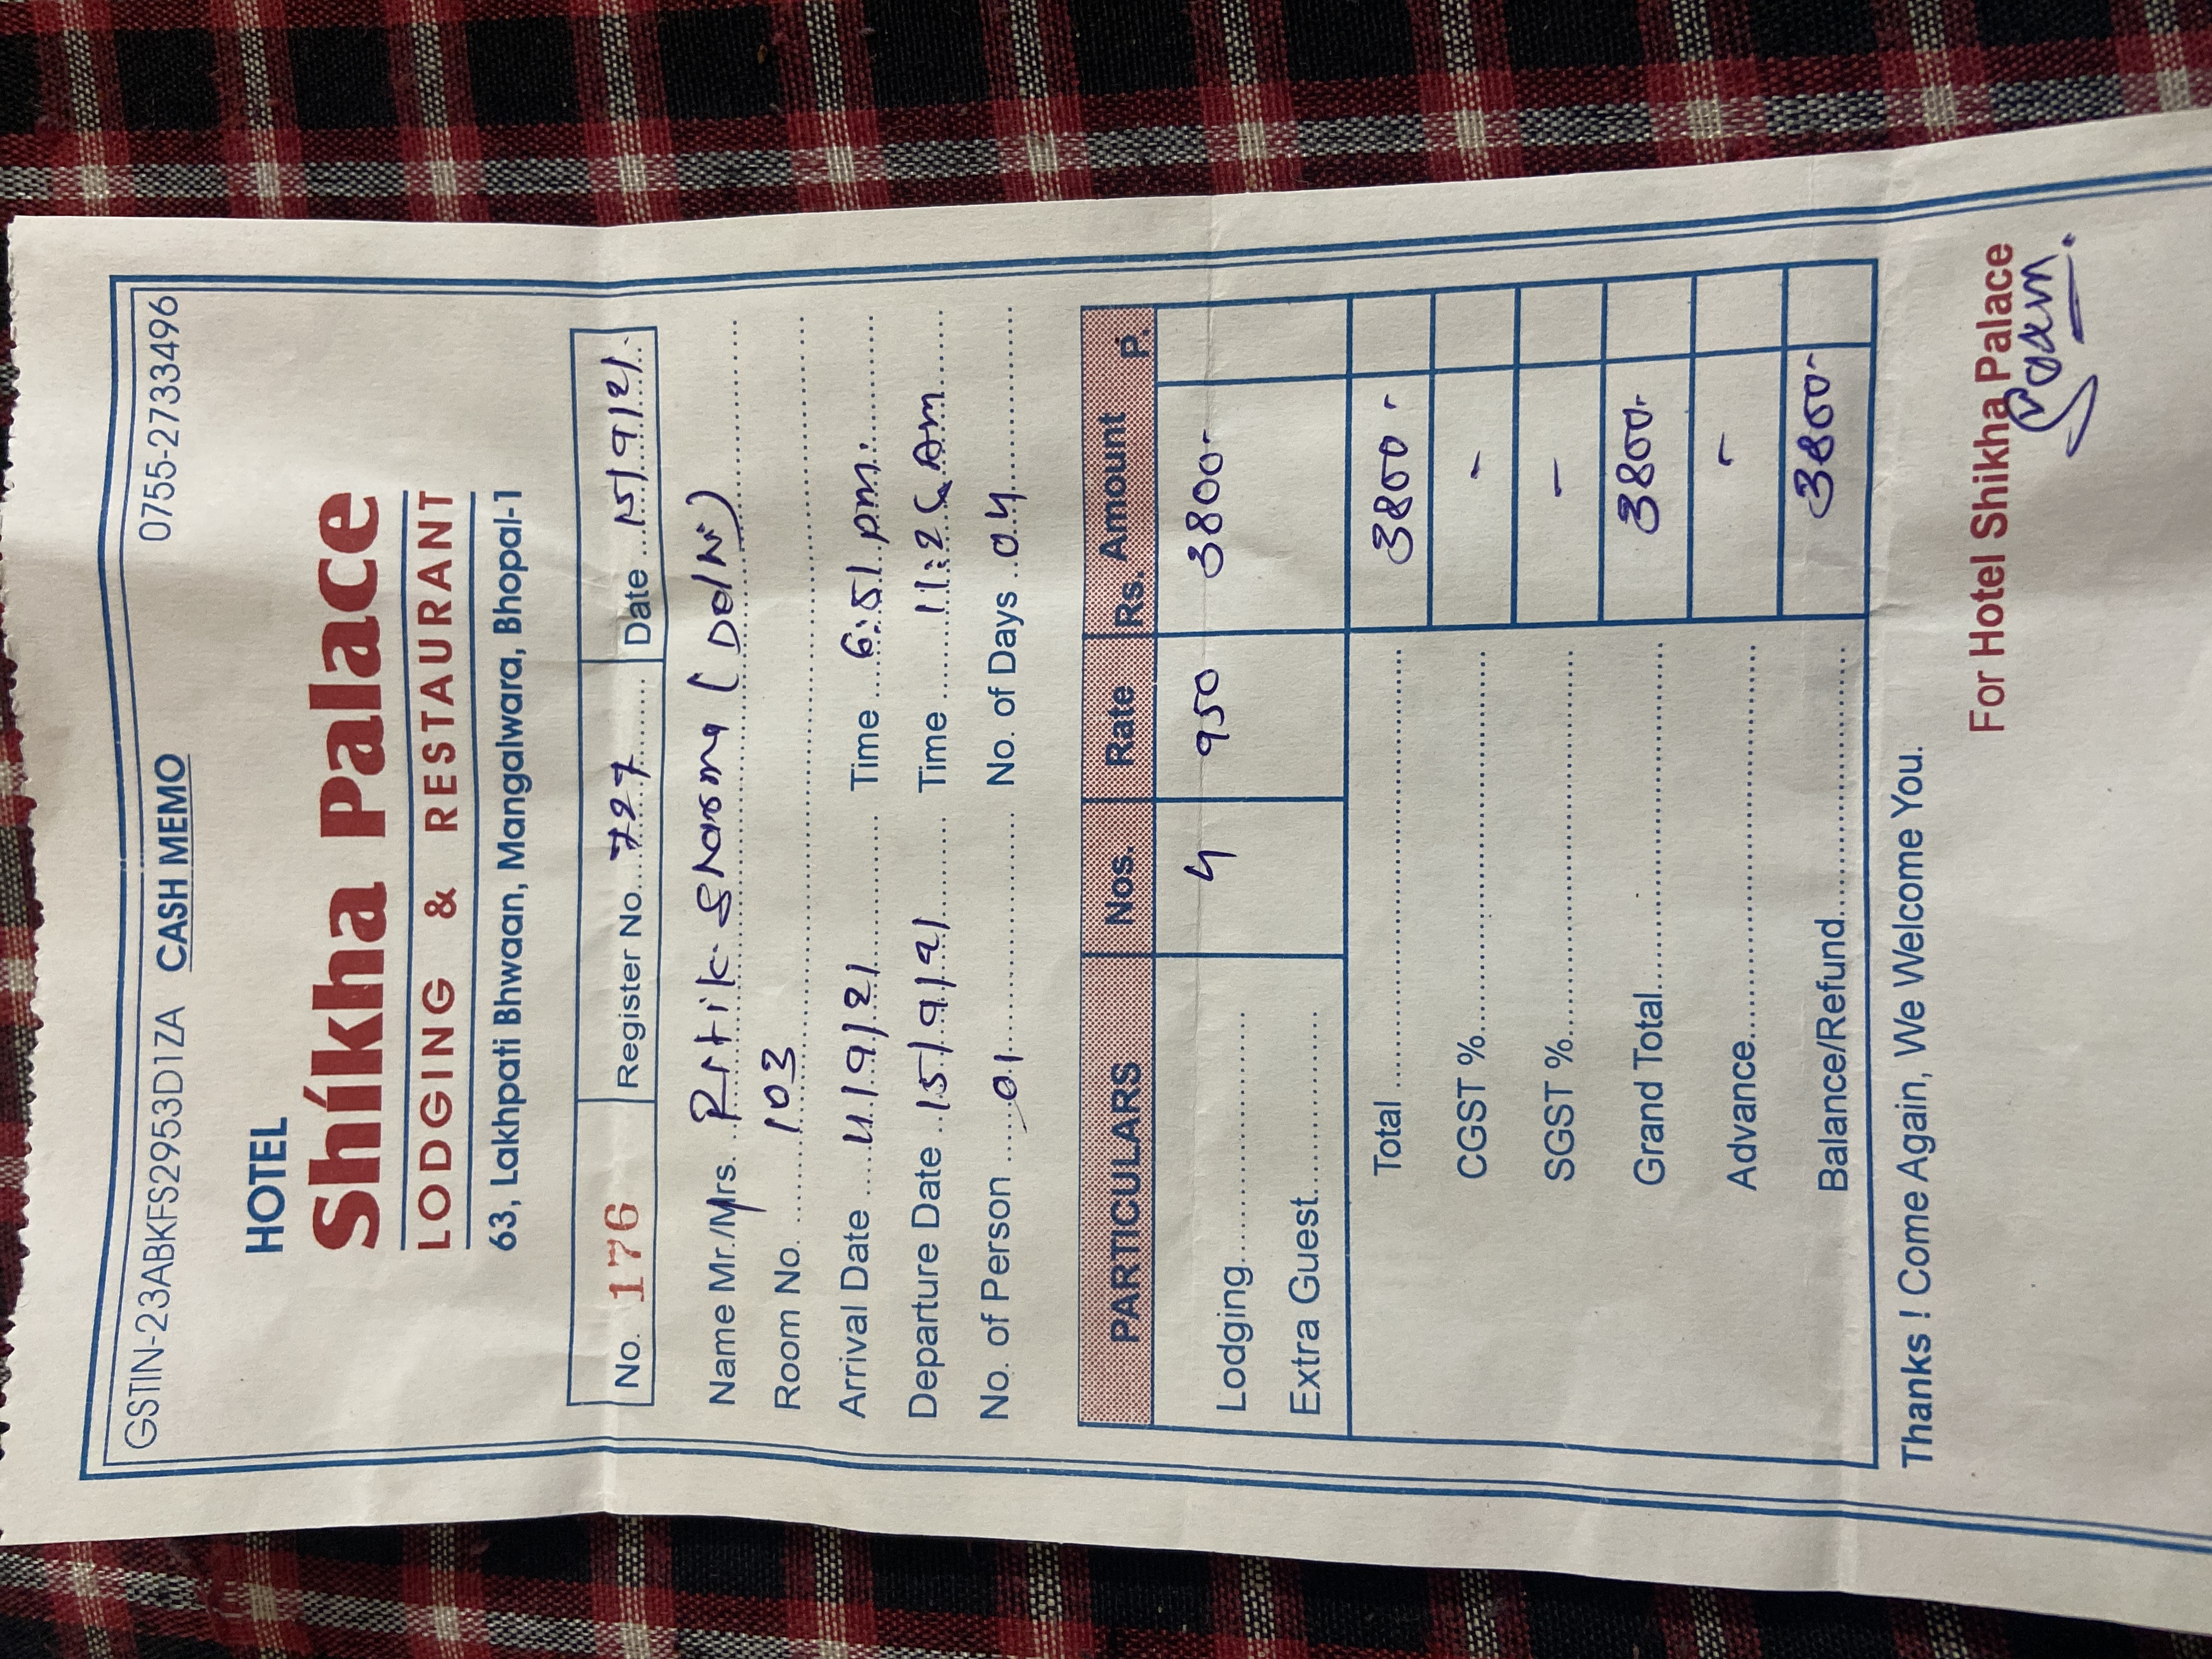 GSTIN-23ABKFS2953D1ZA CASH MEMO 0755-2733496
HOTEL
Shikha Palace
LODGING & RESTAURANT
63, Lakhpati Bhwaan, Mangalwara, Bhopal-1
No. 176 Register No. 727 Date 15/9/21
Name Mr./Mrs. Ritik Sharma
Room No. 103
Arrival Date 11/9/21 Time 6:51 pm.
Departure Date 15/9/21 Time Am
No. of Person 01 No. of Days 04
PARTICULARS Nos. Rate Rs. Amount P.
Lodging 4 950 3800-
Extra Guest
Total 3800-
CGST % -
SGST % -
Grand Total 3800-
Advance -
Balance/Refund 3800-
Thanks ! Come Again, We Welcome You.
For Hotel Shikha Palace